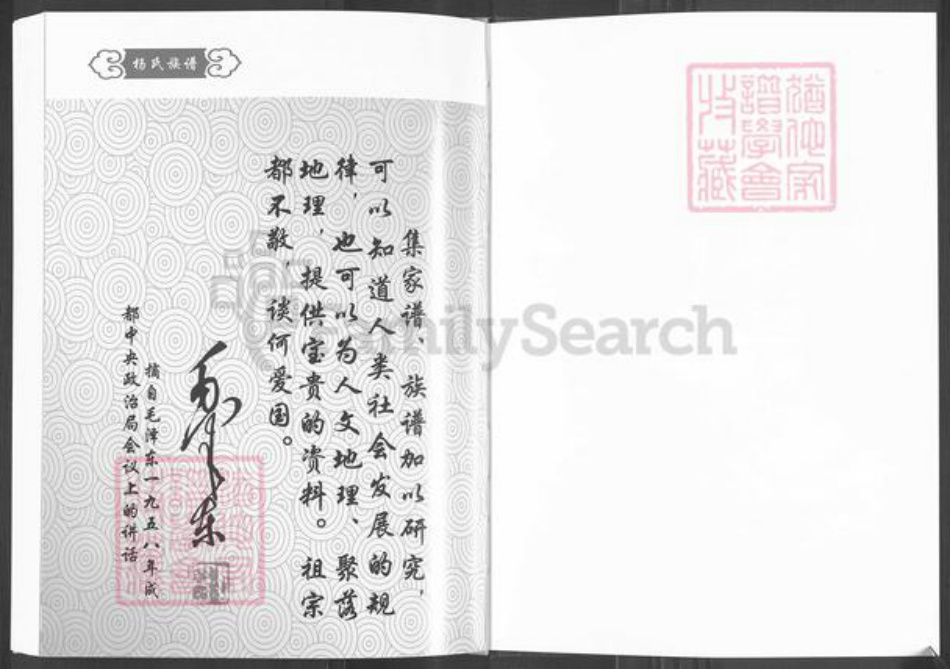 杨氏族谱
集家谱、族谱加以研究，
可以知道人类社会发展的规
律，也可以为人文地理、聚落
地理，提供宝贵的资料。祖宗
都不敬，谈何爱国。
毛泽东
摘自毛泽东一九五八年成
都中央政治局会议上的讲话
猶他家
譜學會
收藏
FamilySearch